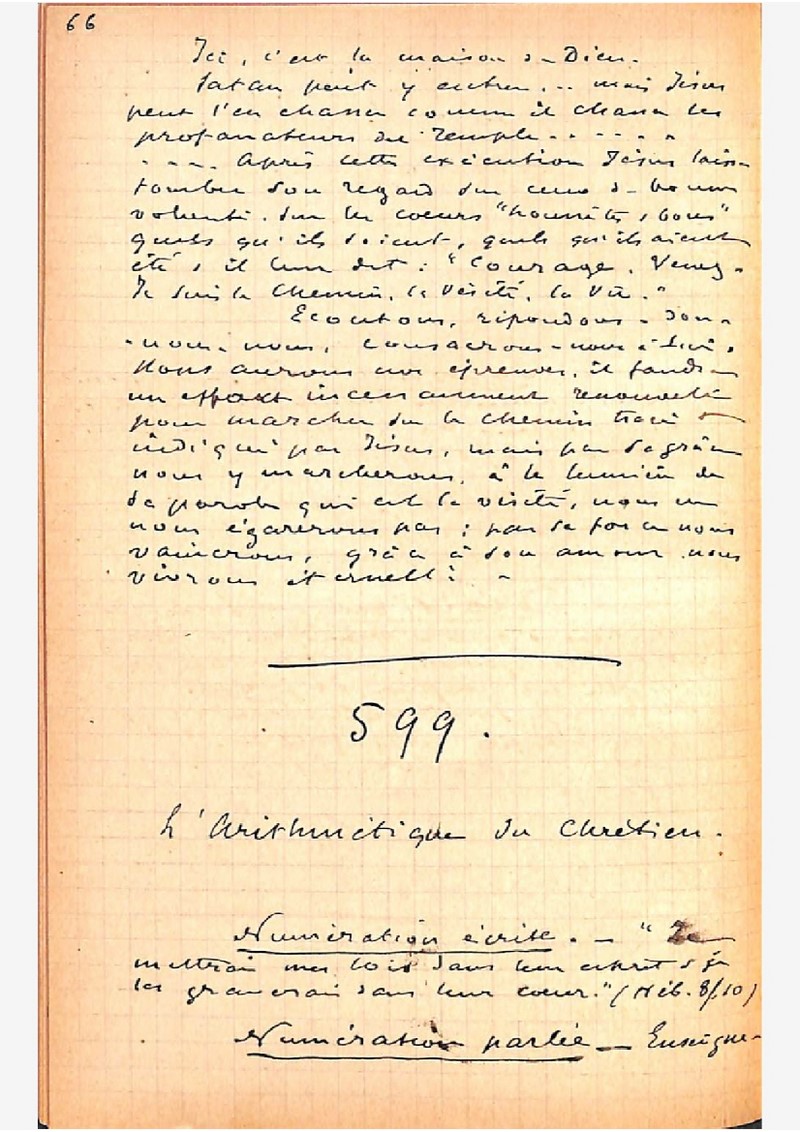 66
Ici, c'est la maison de Dieu.
Satan peut y entrer... mais Jésus
peut l'en chasser comme il chassa les
profanateurs du Temple.......
.... Après cette exécution Jésus laisse
tomber son regard sur ceux de bonne
volonté, sur les coeurs "honnêtes & bons"
quels qu'ils soient, quels qu'ils aient
été & il leur dit : "Courage. Venez.
Je suis le Chemin, la Vérité, la Vie."
Ecoutons, répondons - don-
-nons-nous, consacrons-nous à Lui.
Nous aurons nos épreuves, il faudra
un effort incessamment renouvelé
pour marcher sur le chemin tracé &
indiqué par Jésus, mais par sa grâce
nous y marcherons, à la lumière de
sa parole qui est la vérité, nous ne
nous égarerons pas ; par sa force nous
vaincrons, grâce à son amour nous
vivrons éternellt.
599.
L'Arithmétique du Chrétien.
Numération écrite. - "Je
mettrai mes lois dans leur esprit & je
les graverai dans leur coeur." (Héb. 8/,10)
Numération parlée - Enseigne-